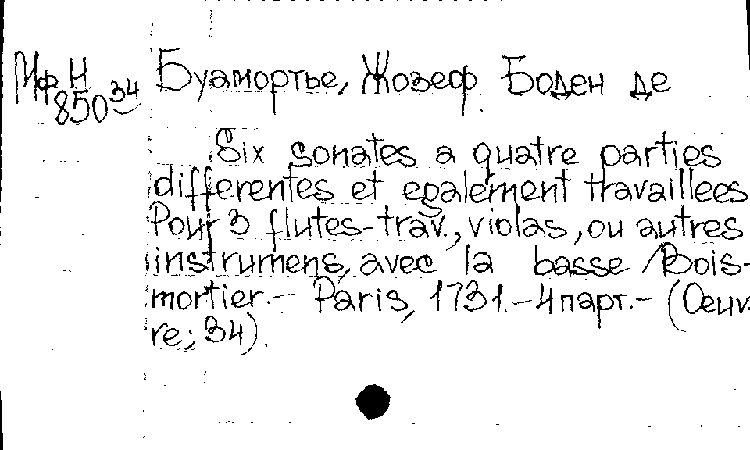 МфН Буамортье, Жозеф Боден де
850 34
Six sonates a quatre parties
differentes et egalement travaillees
Pour 3 flutes-trav., violas, ou autres
instrumens, avec la basse / Bois-
mortier. - Paris, 1731. - 4 парт. - (Oeuv-
re; 34).